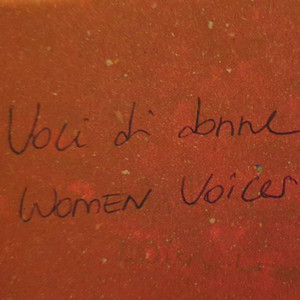 Voci di donne
WOMEN Voices